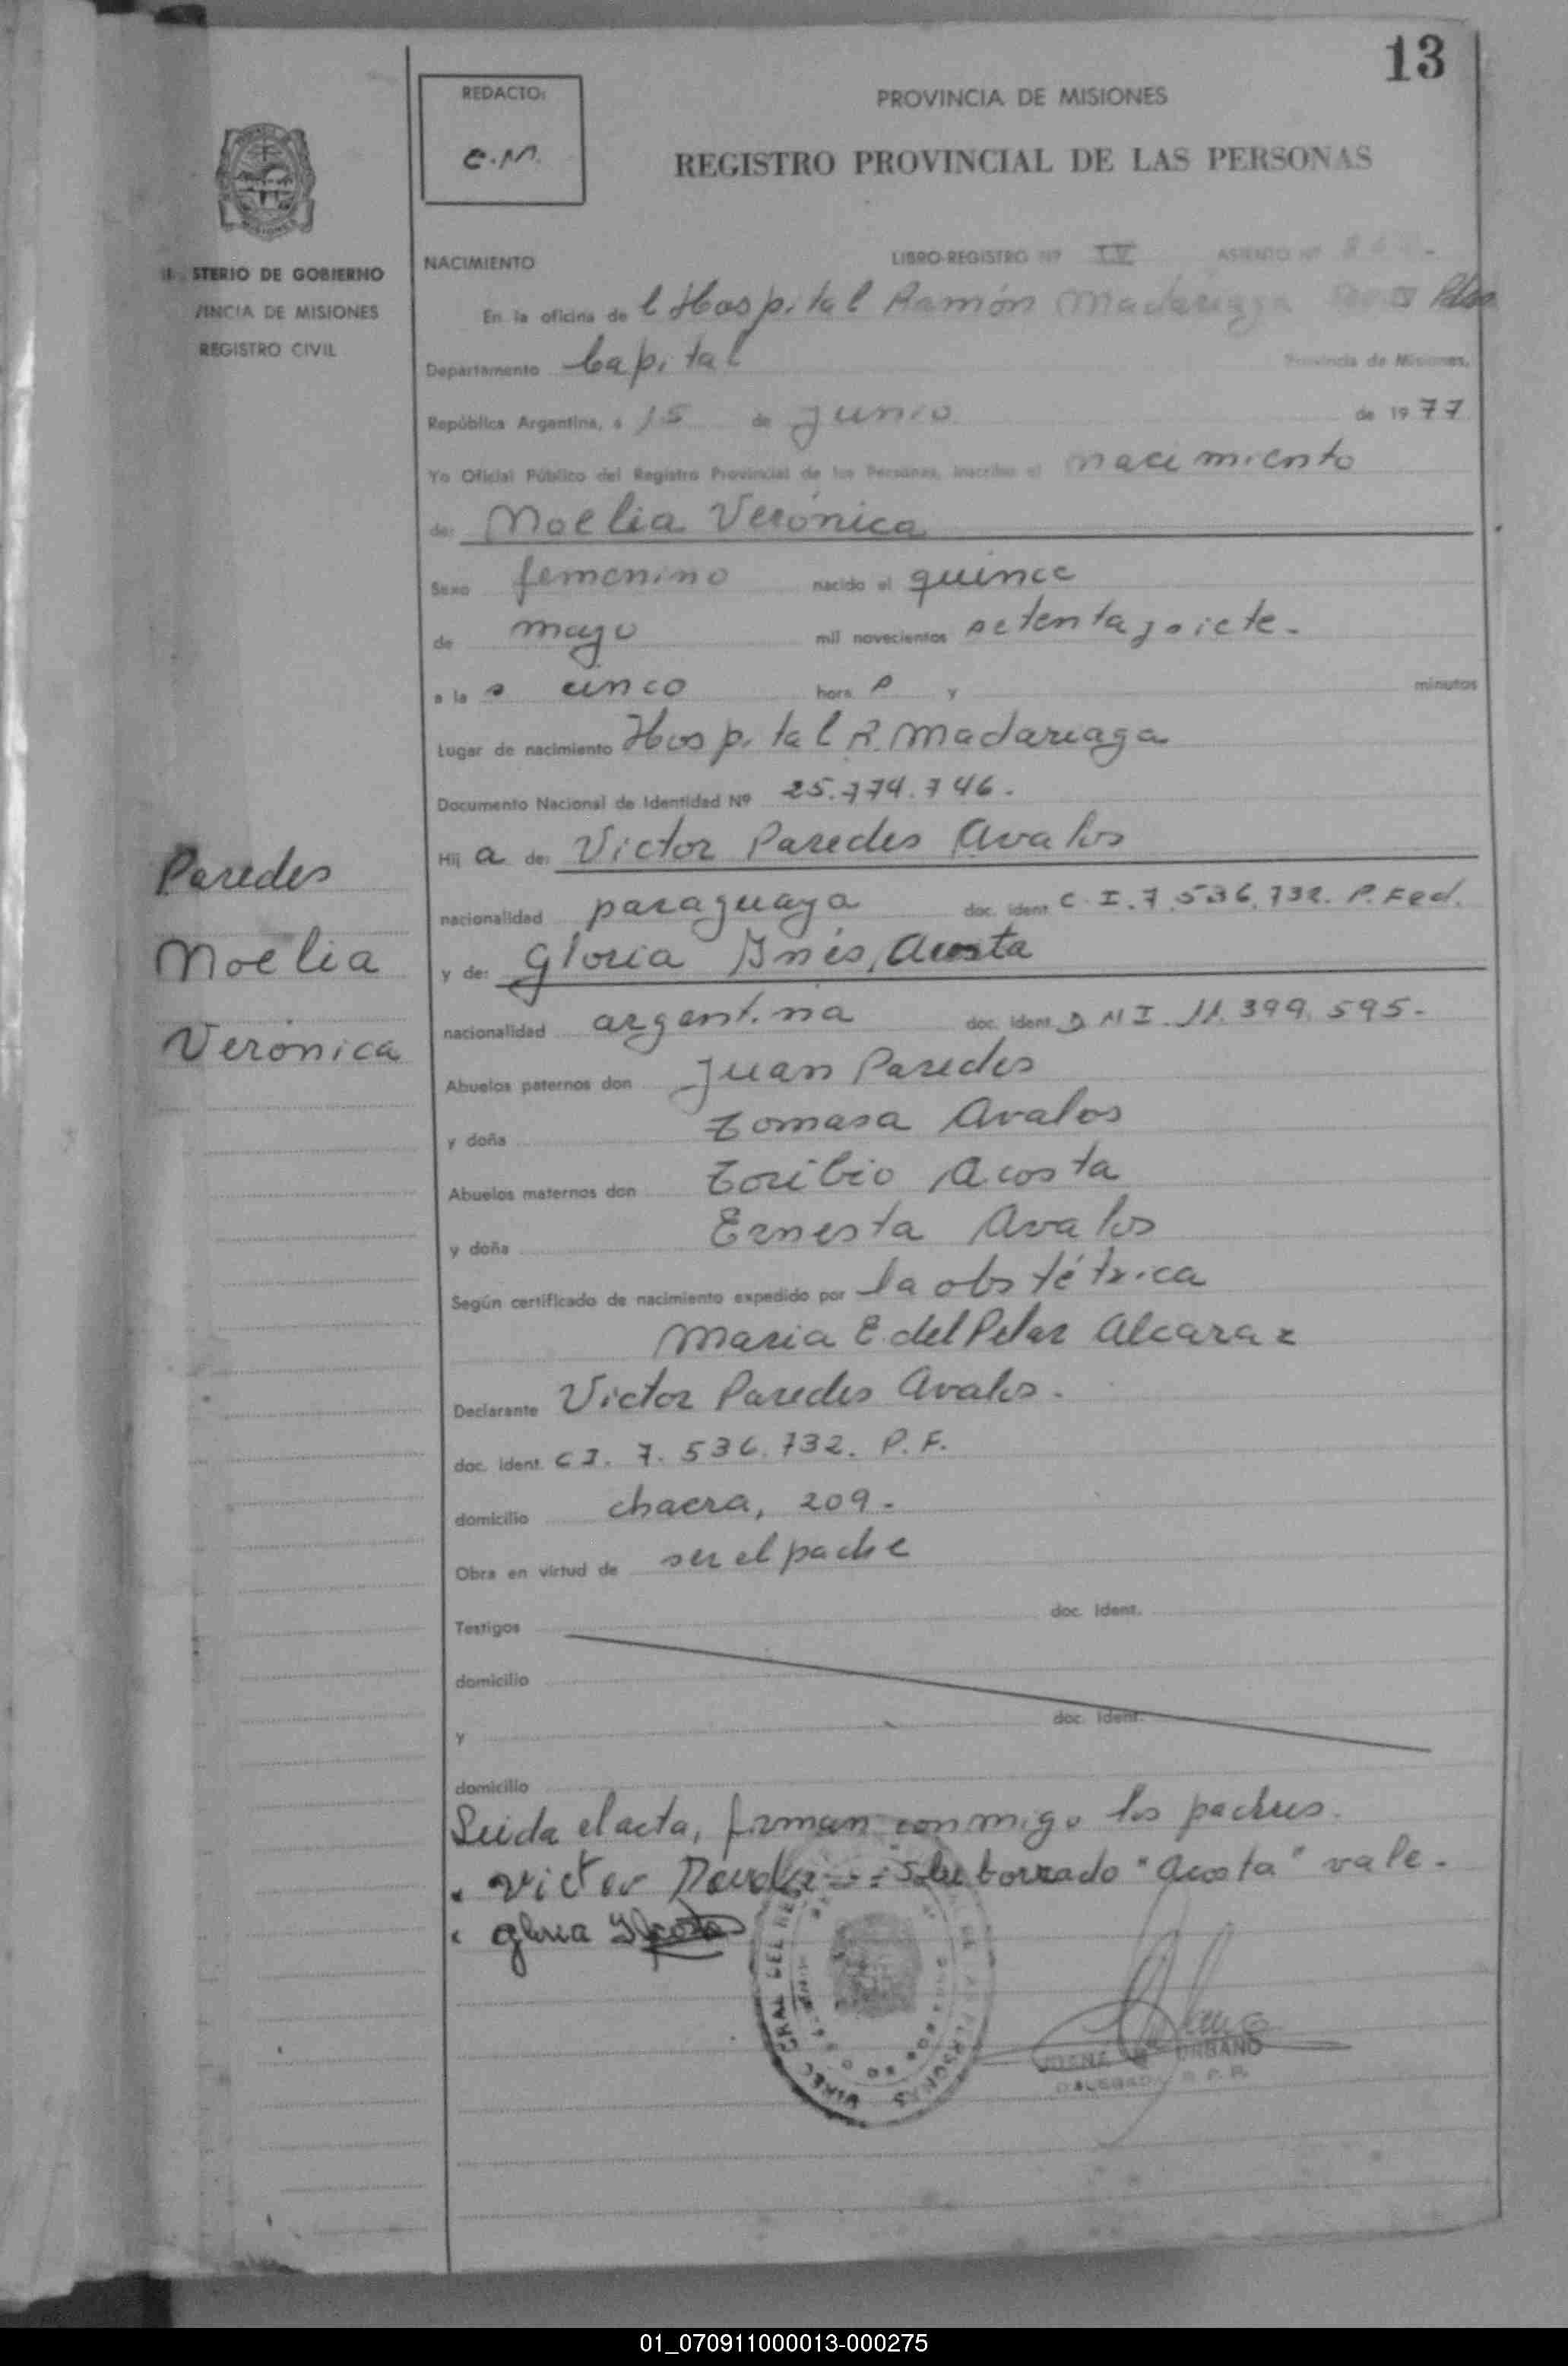 13
REDACTO:
C.M.
PROVINCIA DE MISIONES
REGISTRO PROVINCIAL DE LAS PERSONAS
STERIO DE GOBIERNO
VINCIA DE MISIONES
REGISTRO CIVIL
NACIMIENTO LIBRO-REGISTRO Nº IV ASIENTO Nº
En la oficina de l Hospital Ramón Madariaga
Departamento Capital Provincia de Misiones,
República Argentina, a 15 de junio de 1977
Yo Oficial Público del Registro Provincial de las Personas, inscribo el nacimiento
de: Noelia Verónica
Sexo femenino nacido el quince
de mayo mil novecientos setenta y siete.
a la s cinco hora s y minutos
Lugar de nacimiento Hospital R. Madariaga
Documento Nacional de Identidad Nº 25.774.746.
Hij a de: Victor Paredes Avalos
nacionalidad paraguaya doc. ident. C.I. 7.536.732. P. Fed.
y de: Gloria Inés, Acosta
nacionalidad argentina doc. ident. D N I. 11.399.595.
Abuelos paternos don Juan Paredes
y doña Tomasa Avalos
Abuelos maternos don Toribio Acosta
y doña Ernesta Avalos
Según certificado de nacimiento expedido por la obstétrica
Maria E. del Pilar Alcaraz
Declarante Victor Paredes Avalos.
doc. ident. C I. 7.536.732. P.F.
domicilio chacra, 209.
Obra en virtud de ser el padre
Testigos doc. ident.
domicilio
y doc. ident.
domicilio
Leida el acta, firman conmigo los padres.
Victor Sobre borrado "Acosta" vale.
Gloria I Acosta
Paredes
Noelia
Verónica
URBANO
DELEGADA R. P. P.
01_070911000013-000275